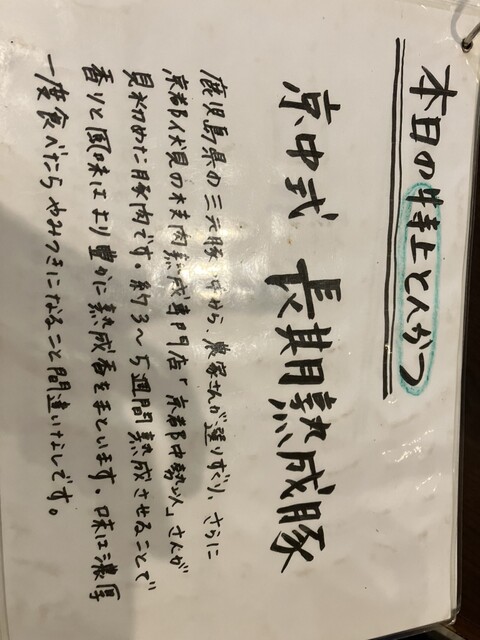 本日の特上とんかつ
京中式 長期熟成豚
鹿児島県の三元豚の中から、農家さんが選りすぐり、さらに
京都伏見の本熟成専門店「京都中勢以」さんが
見初めた豚肉です。約3〜5週間熟成させることで
香りと風味はより豊かに熟成香をまといます。味は濃厚
一度食べたらやみつきになること間違いなしです。